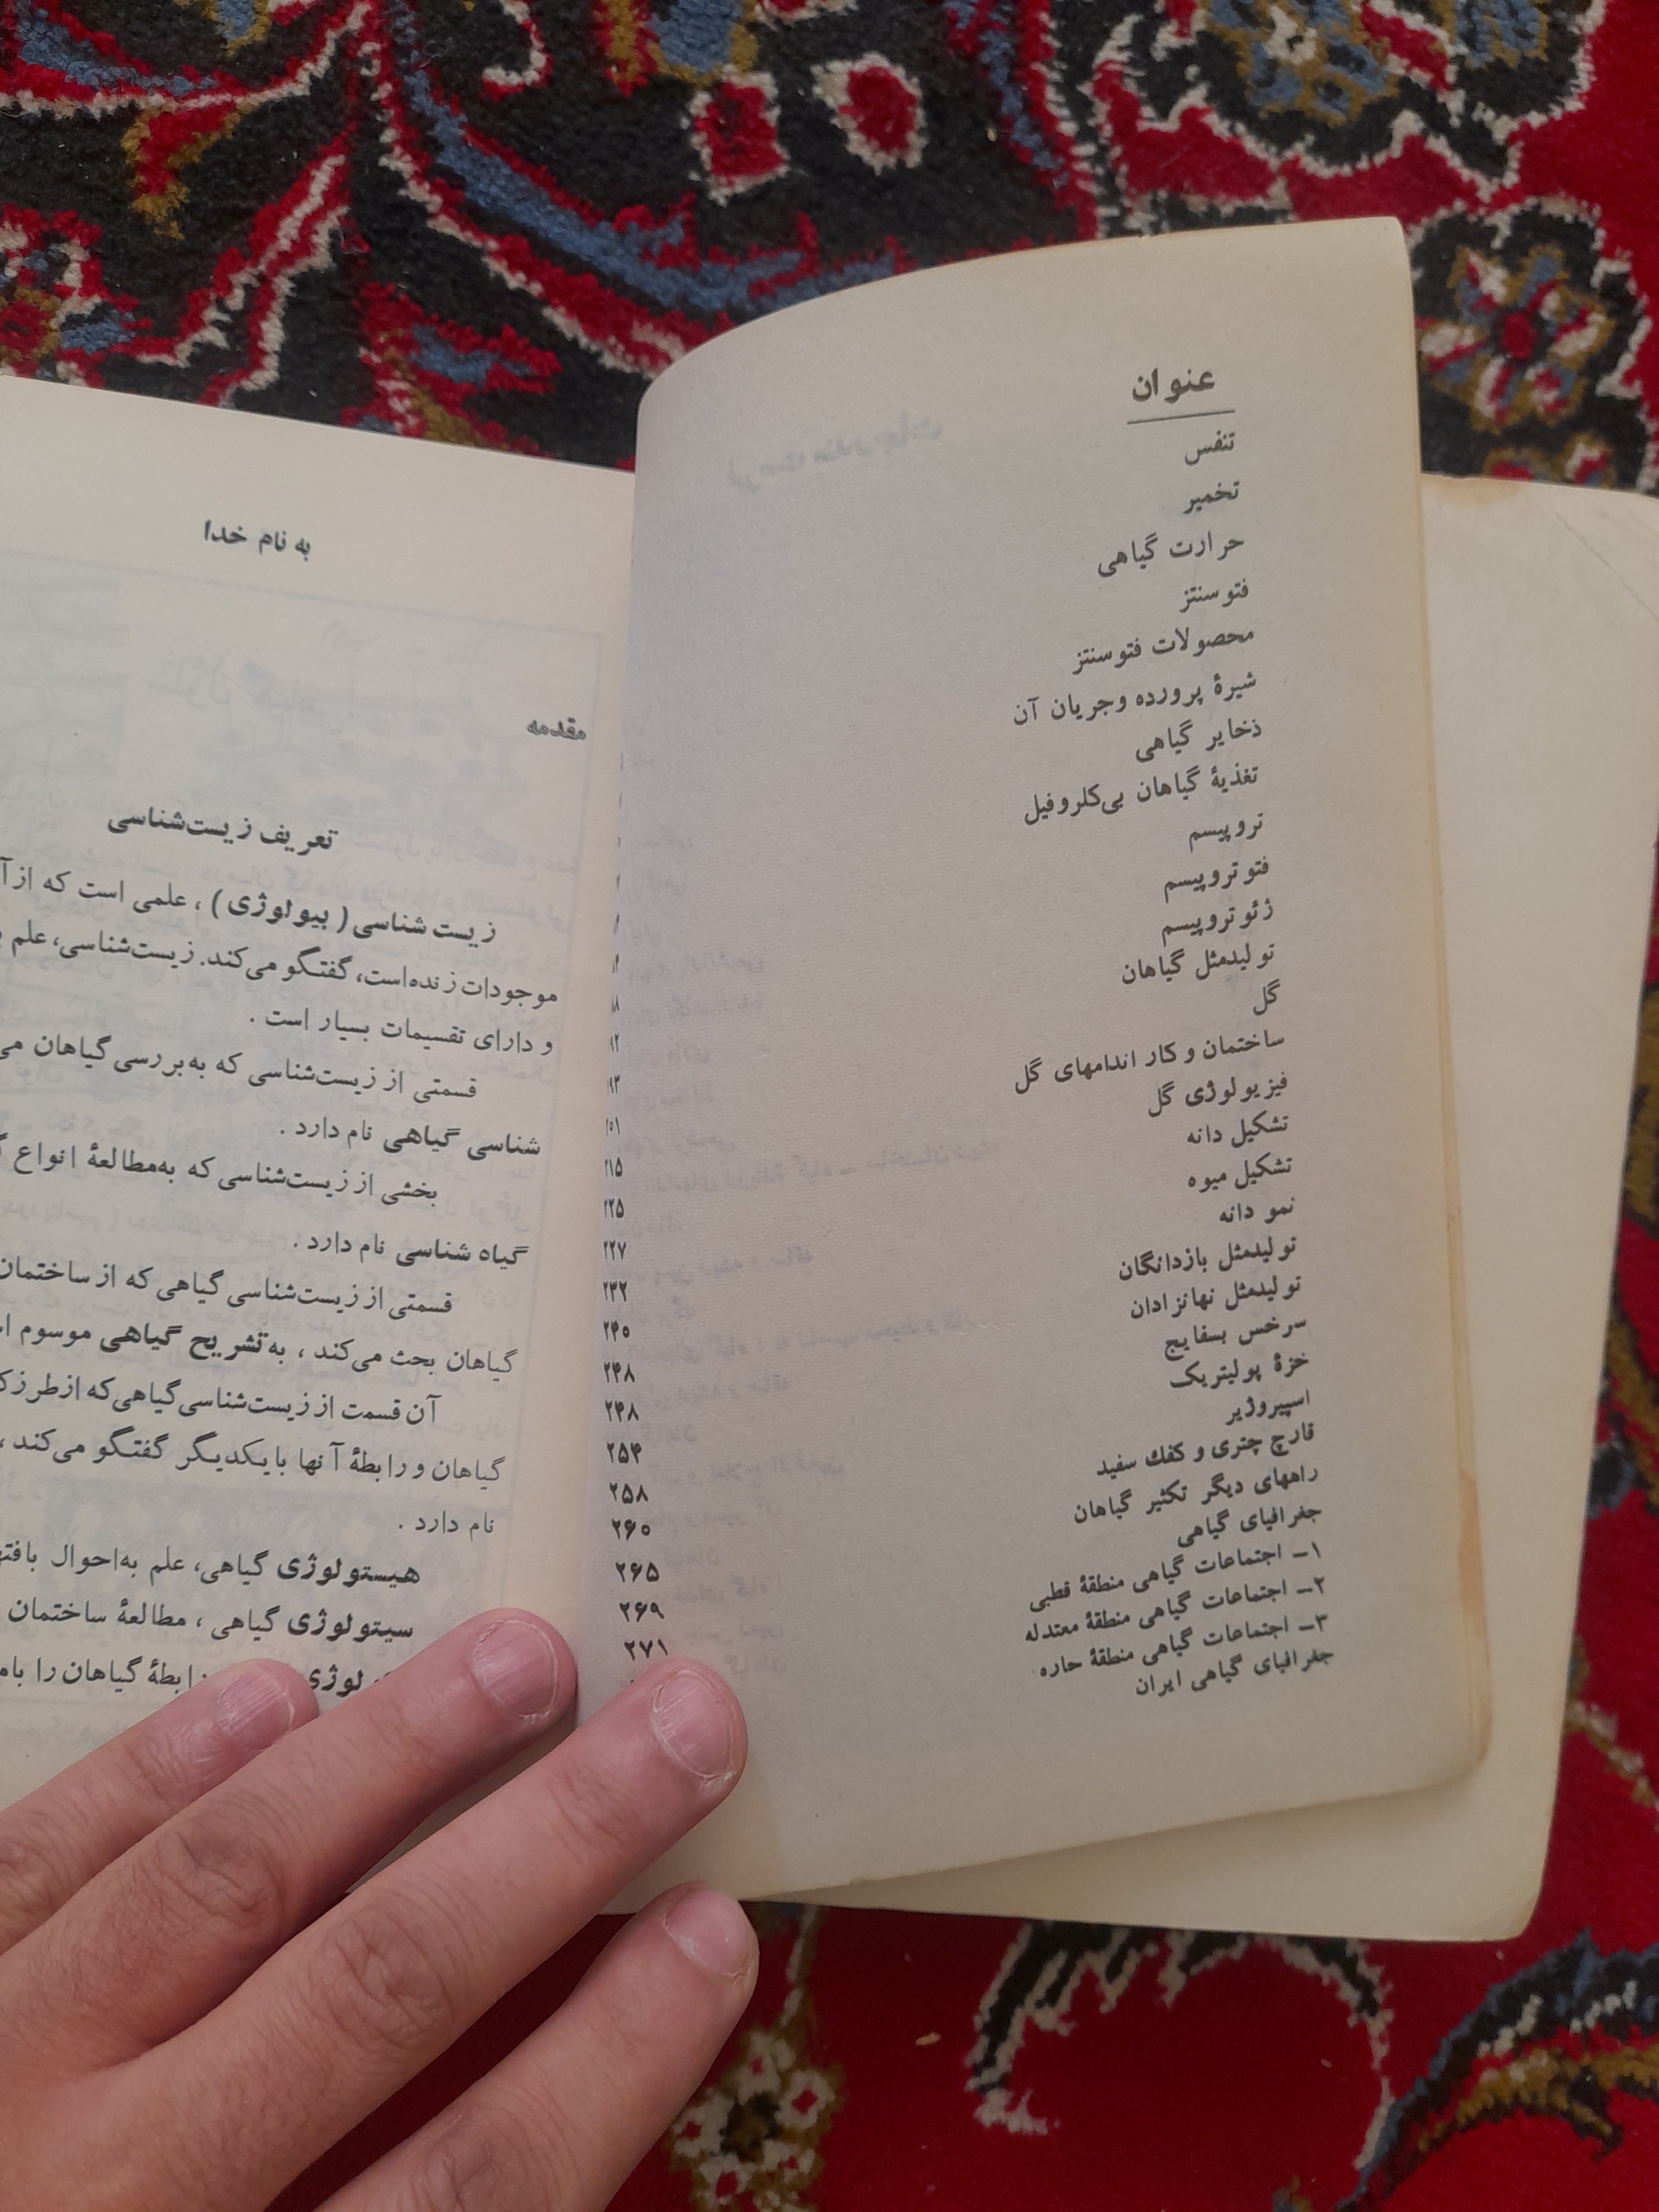 عنوان
تنفس
تخمیر
حرارت گیاهی
فتوسنتز
محصولات فتوسنتز
شیرهٔ پرورده وجریان آن
ذخایر گیاهی
تغذیهٔ گیاهان بی‌کلروفیل
تروپیسم
فتوتروپیسم
ژئوتروپیسم
تولیدمثل گیاهان
گل
ساختمان و کار اندامهای گل
فیزیولوژی گل
تشکیل دانه
تشکیل میوه
نمو دانه
تولیدمثل بازدانگان
تولیدمثل نهانزادان
سرخس بسفایج
خزهٔ پولیتریک
اسپیروژیر
قارچ چتری و کفک سفید
راههای دیگر تکثیر گیاهان
جغرافیای گیاهی
۱ــ اجتماعات گیاهی منطقهٔ قطبی
۲ــ اجتماعات گیاهی منطقهٔ معتدله
۳ــ اجتماعات گیاهی منطقهٔ حاره
جغرافیای گیاهی ایران
۲۱۵
۲۲۵
۲۲۷
۲۳۲
۲۴۵
۲۴۸
۲۴۸
۲۵۴
۲۵۸
۲۶۰
۲۶۵
۲۶۹
۲۷۱
به نام خدا
مقدمه
تعریف زیست‌شناسی
زیست شناسی (بیولوژی) ، علمی است که از
موجودات زنده‌است، گفتگو می‌کند. زیست‌شناسی، علم
و دارای تقسیمات بسیار است .
قسمتی از زیست‌شناسی که به‌بررسی گیاهان
شناسی گیاهی نام دارد .
بخشی از زیست‌شناسی که به‌مطالعهٔ انواع
گیاه شناسی نام دارد .
قسمتی از زیست‌شناسی گیاهی که از ساختمان
گیاهان بحث می‌کند ، به‌تشریح گیاهی موسوم
آن قسمت از زیست‌شناسی گیاهی‌که از طرز
گیاهان و رابطهٔ آنها بایکدیگر گفتگو می‌کند ،
نام دارد .
هیستولوژی گیاهی، علم به‌احوال
سیتولوژی گیاهی ، مطالعهٔ ساختمان
گیاهان را